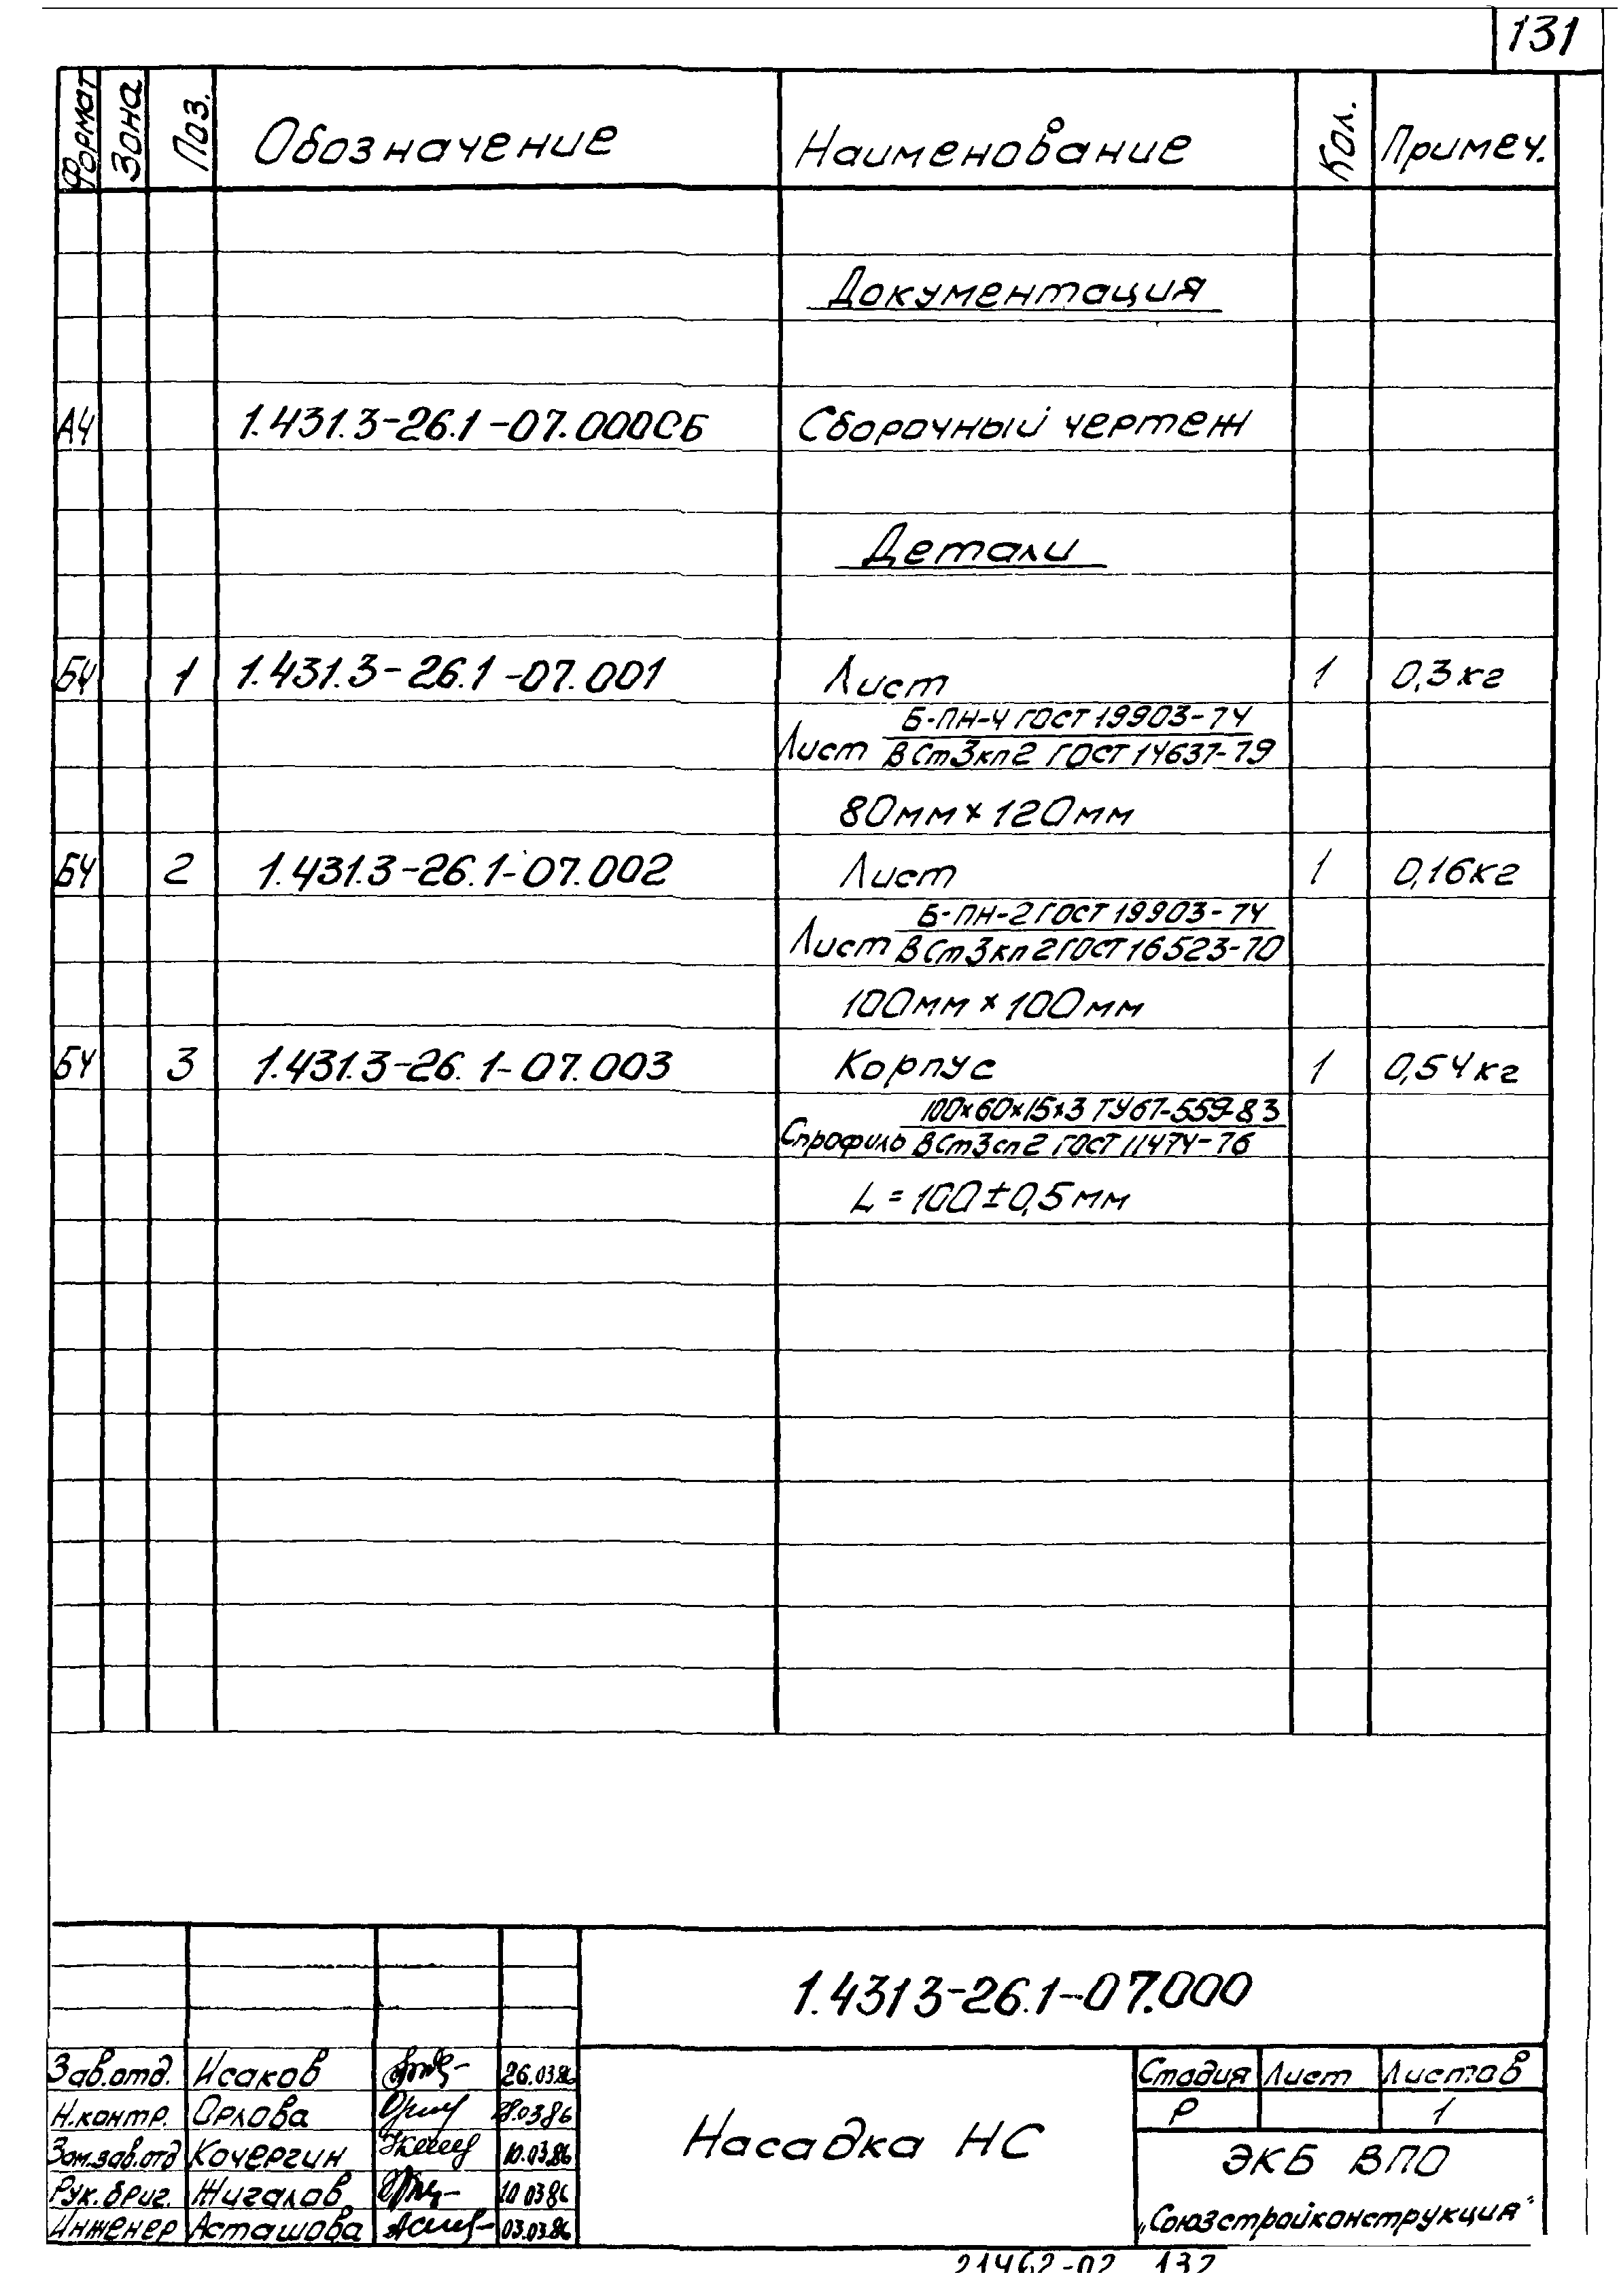 131
Формат Зона Поз. Обозначение Наименование Кол. Примеч.
Документация
А4 1.431.3-26.1-07.000СБ Сборочный чертеж
Детали
БЧ 1 1.431.3-26.1-07.001 Лист 1 0,3кг
Б-ПН-4 ГОСТ 19903-74
Лист ВСт3кп2 ГОСТ 14637-79
80мм×120мм
БЧ 2 1.431.3-26.1-07.002 Лист 1 0,16кг
Б-ПН-2 ГОСТ 19903-74
Лист ВСт3кп2 ГОСТ 16523-70
100мм×100мм
БЧ 3 1.431.3-26.1-07.003 Корпус 1 0,54кг
100×60×15×3 ТУ67-559-83
Cпрофиль ВСт3сп2 ГОСТ 11474-76
L=100±0,5мм
1.431 3-26.1-07.000
Зав.отд. Исаков 26.03.86
Н.контр. Орлова .0386
Зам.зав.отд Кочергин 10.03.86
Рук.бриг. Жигалов 10 0386
Инженер Асташова 03.03.86
Насадка НС
Стадия Лист Листов
Р 1
ЭКБ ВПО
„Союзстройконструкция"
21462-02 132